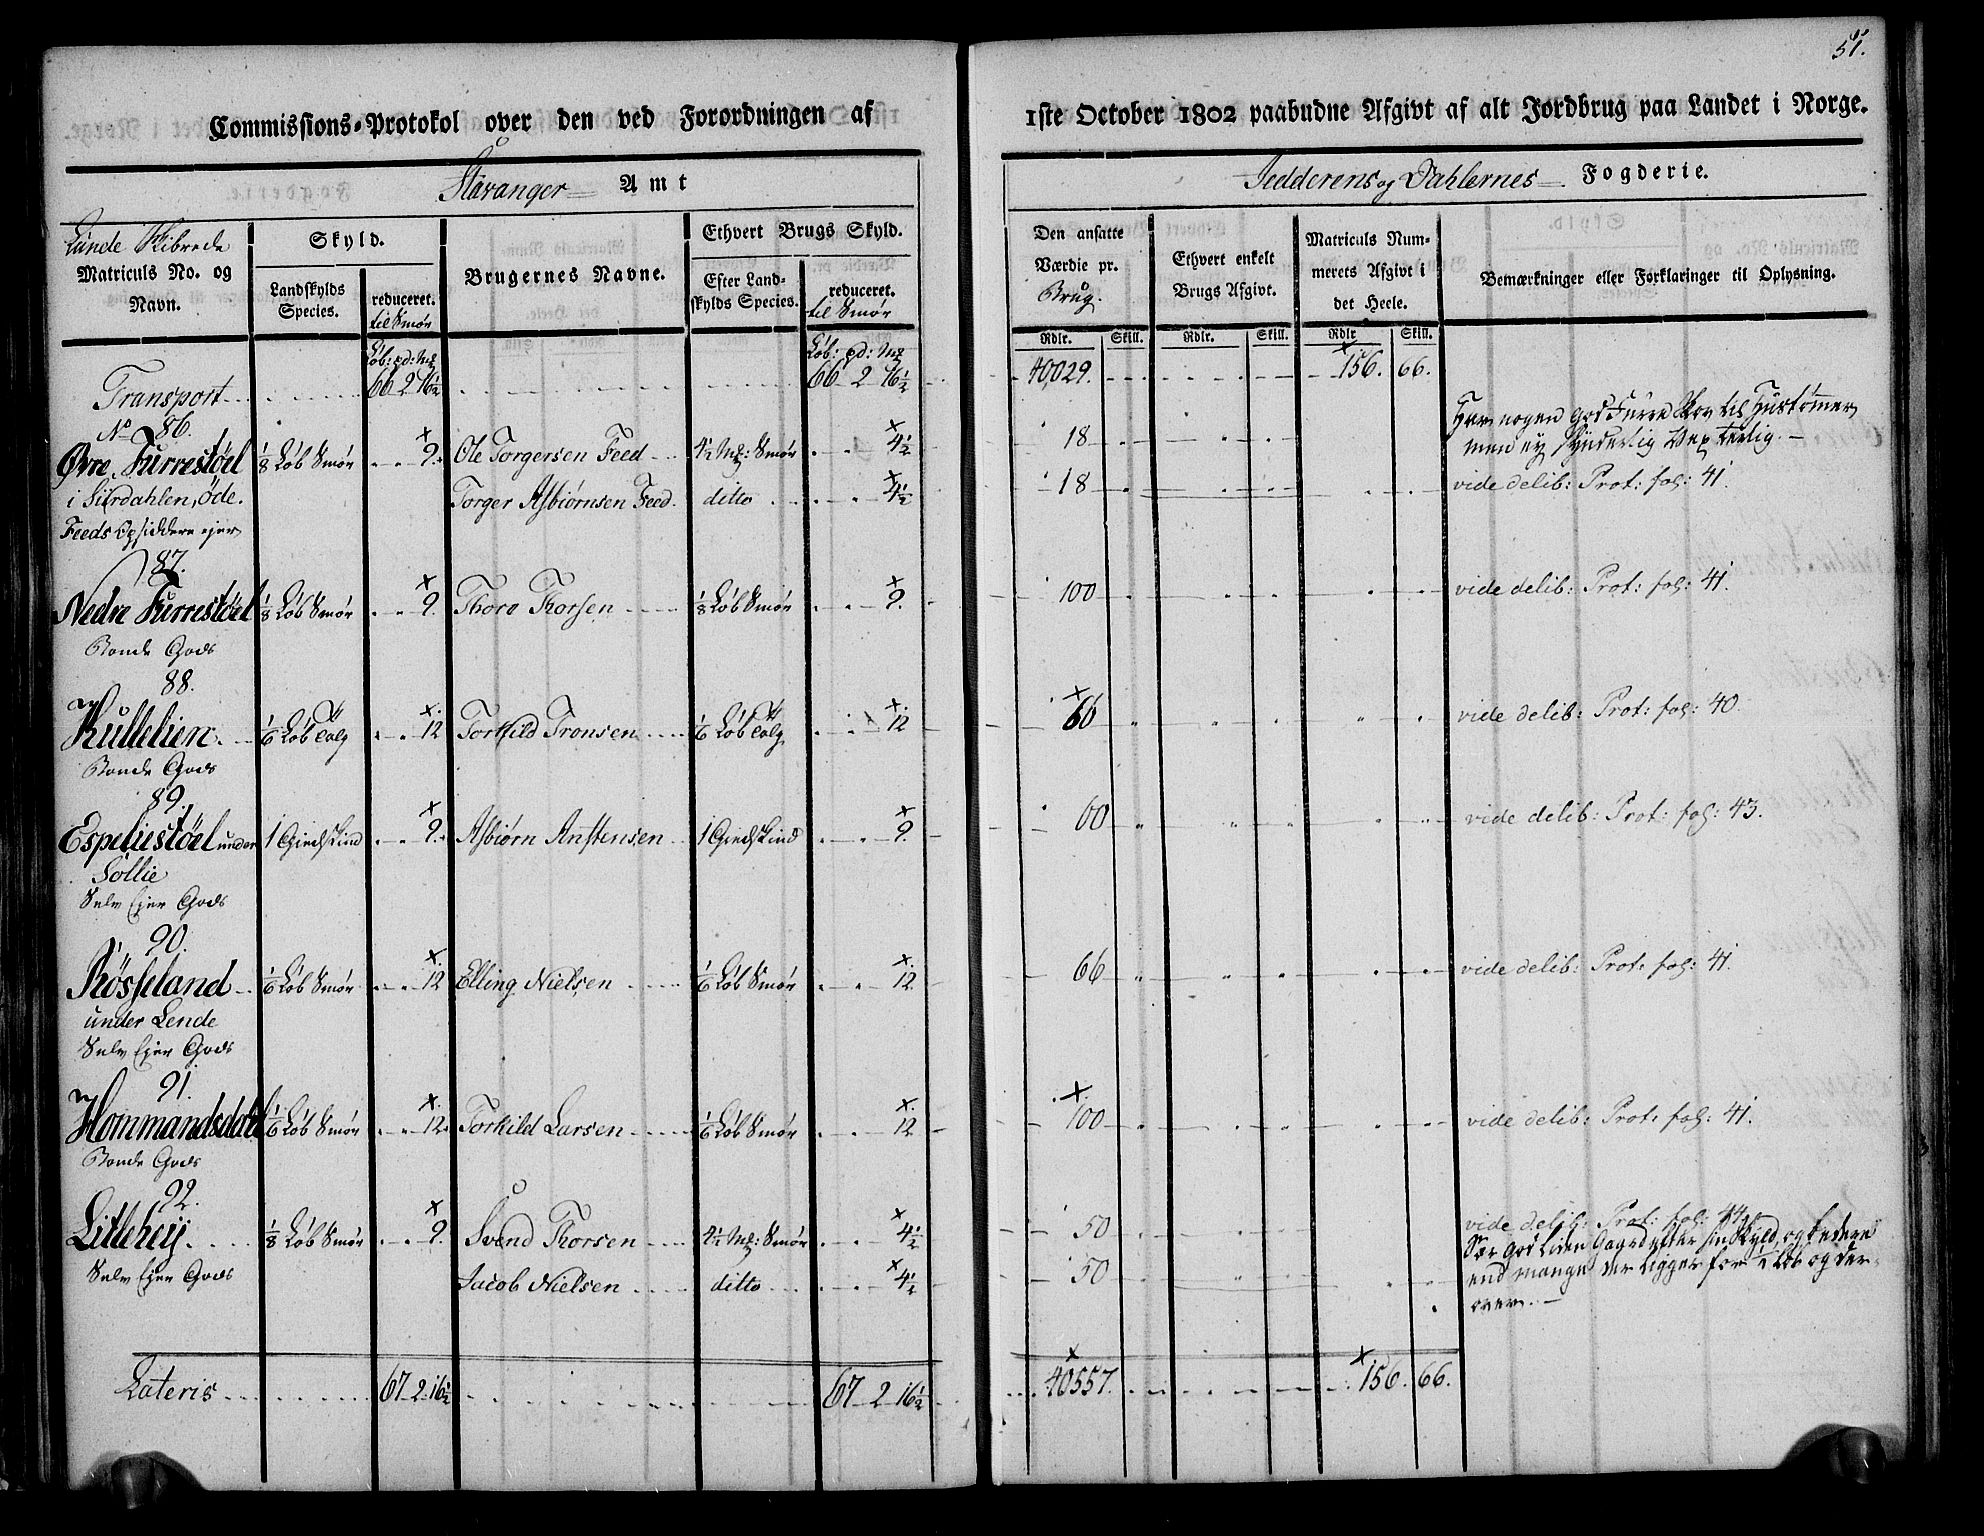 51.
Commissions-Protokol over den ved Forordningen af 1ste October 1802 paabudne Afgivt af alt Jordbrug paa Landet i Norge.
Stavanger Amt Jedderens og Dahlernes Fogderie.
Lunde Skibrede
Matriculs No. og Navn.
Skyld.
Landskylds Species.
reduceret. til Smør
Brugernes Navne.
Ethvert Brugs Skyld.
Efter Landskylds Species.
reduceret. til Smør
Den ansatte Værdie pr. Brug.
Ethvert enkelt Brugs Afgivt.
Matriculs Nummerets Afgivt i det Heele.
Bemærkninger eller Forklaringer til Oplysning.
Løb: pd: Mk Løb: pd: Mk Rdlr. Skill. Rdlr. Skill. Rdlr Skill.
Transport 66 2 16½ 66 2 16½ 40,029. 156. 66.
No 86.
Øvre Furrestøel ⅛ Løb Smør 9. Ole Torgersen Feed 4½ Mk: Smør 4½ 18 Har nogen god Furre Skov til Hustømmer
men ej synderlig Vexterlig.
i Sirdahlen, øde. Torger Asbiørnsen Feed. ditto 4½ 18 vide delib: Prot: fol: 41.
Feeds Opsiddere ejer
87.
Nedre Furrestøel ⅛ Løb Smør 9. Thore Thorsen ⅛ Løb Smør 9. 100 vide delib: Prot: fol: 41.
Bonde Gods
88.
Kullelien 1/6 Løb Talg 12 Torkild Tronsen 1/6 Løb Talg 12 60 vide delib: Prot: fol: 40.
Bonde Gods
89.
Espeliestøel under 1 Giedskind 9. Asbiørn Anstensen 1 Giedskind 9. 60 vide delib: Prot: fol: 43.
Sollie
Selv Ejer Gods
90.
Røsseland 1/6 Løb Smør 12 Elling Nielsen 1/6 Løb Smør 12 66 vide delib: Prot: fol: 41.
under Lende
Selv Ejer Gods
91.
Hommandsdal 1/6 Løb Smør 12 Torkild Larsen 1/6 Løb Smør 12 100 vide delib: Prot: fol: 41.
Bonde Gods
92.
Litleheij ⅛ Løb Smør 9. Svend Thorsen 4½ Mk: Smør 4½ 50 vide delib: Prot: fol: 44.
god Liden Gaard efter sin Skyld, og bedere
Selv Ejer Gods Jacob Nielsen ditto 4½ 50 end mange der ligger for ½ Løb og der-
over.
Lateris 67 2 16½ 67 2 16½ 40557. 156. 66.